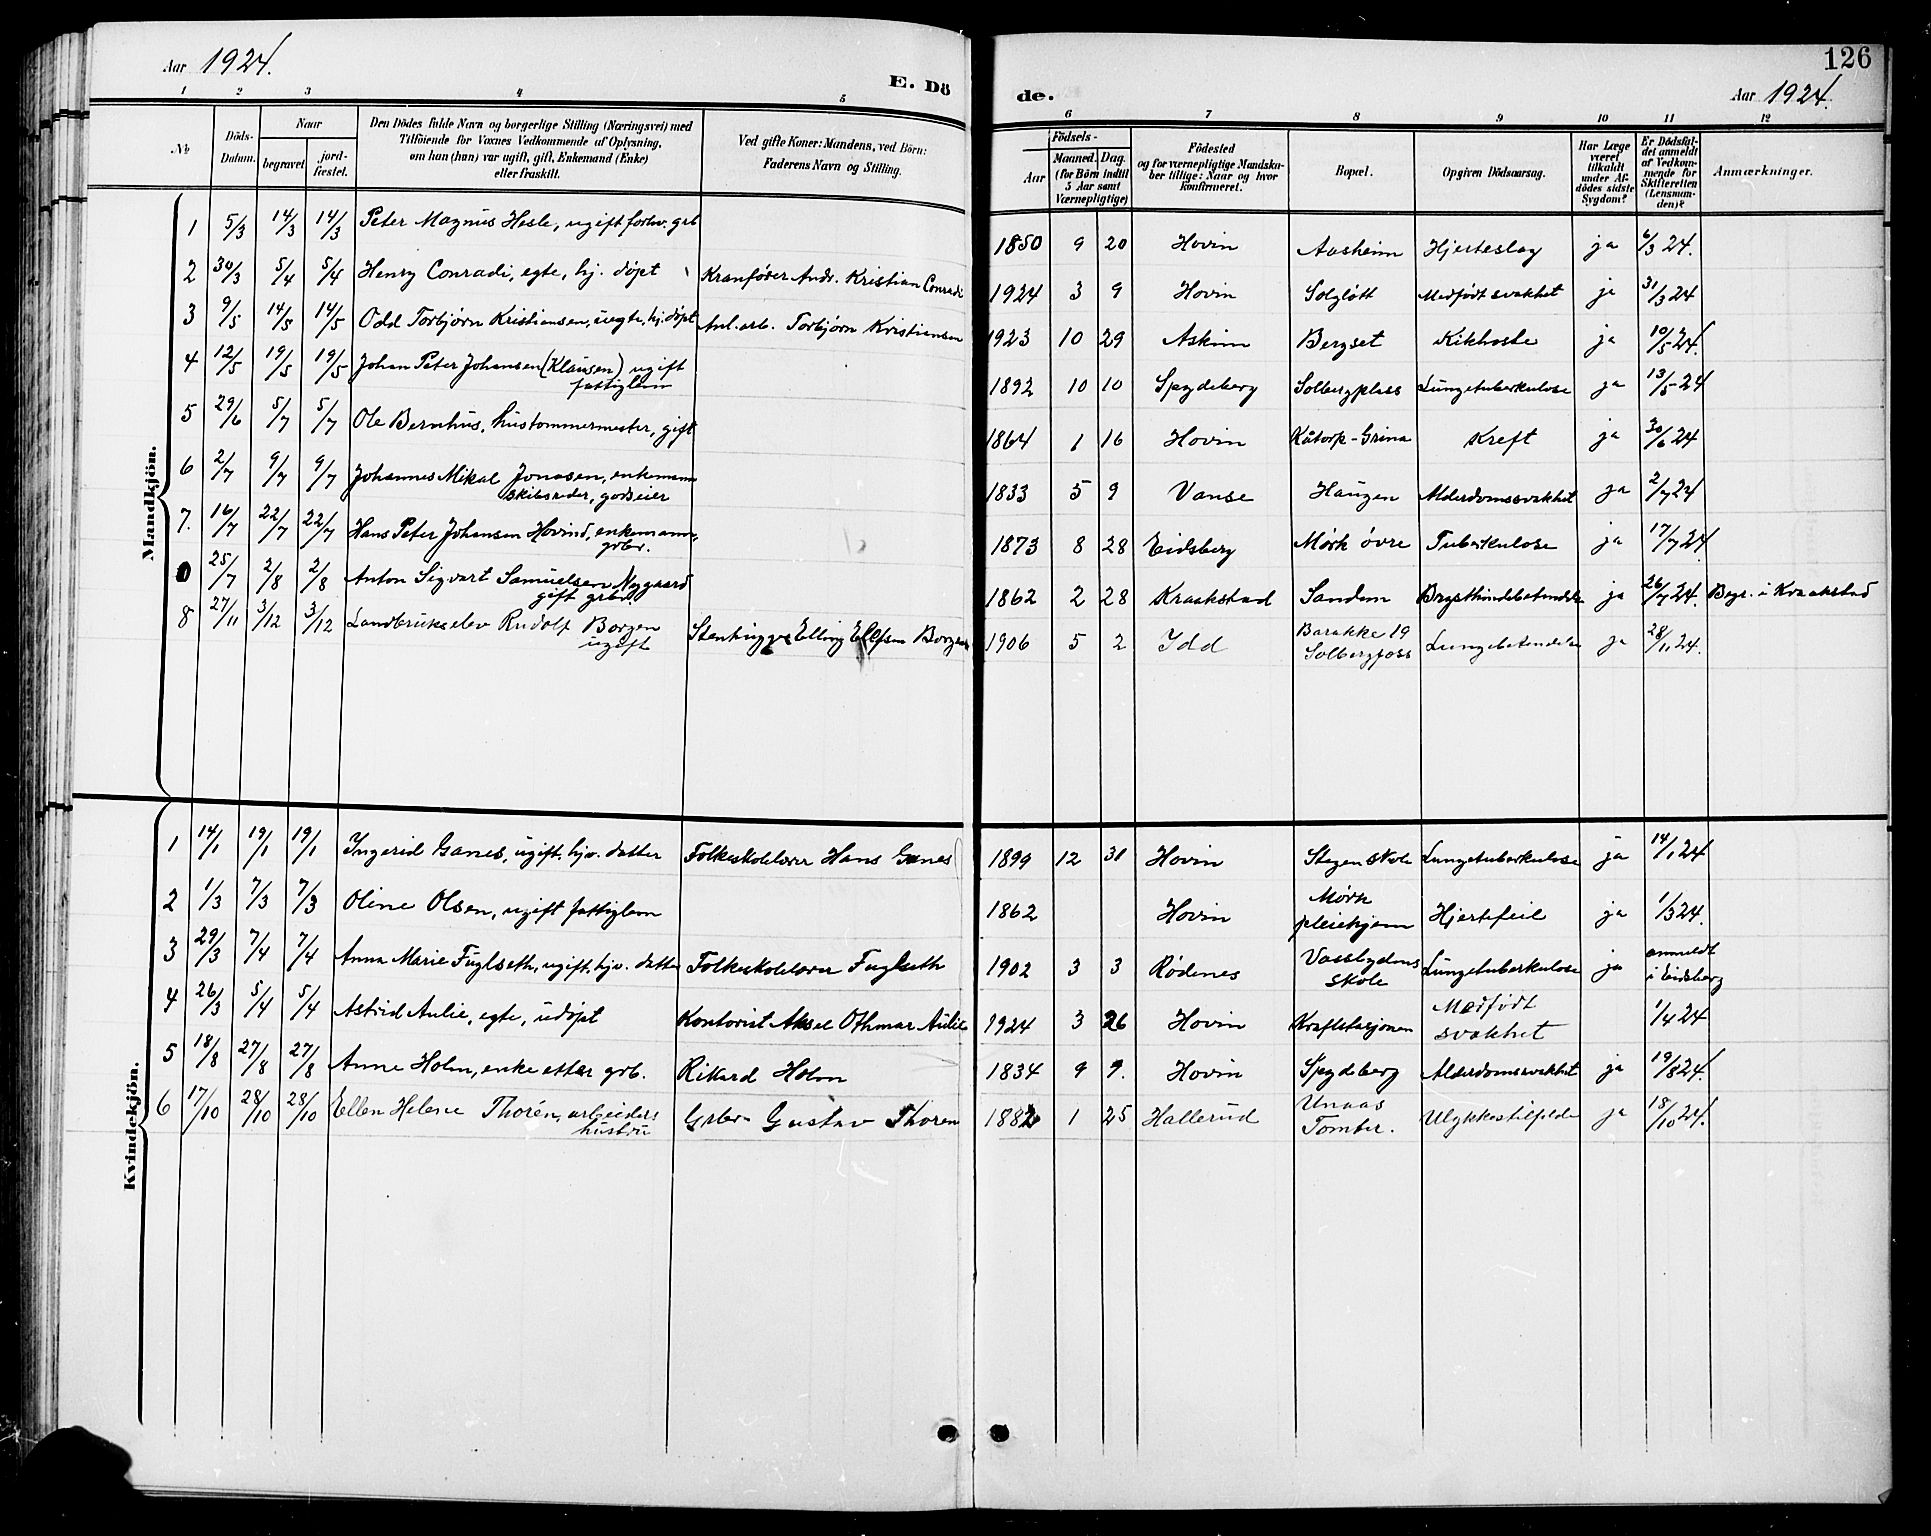 126
Aar 1924.
E. Dö
de.
Aar 1924.
1 2 3 4 5 6 7 8 9 10 11 12
No
Döds-Datum.
Naar
begravet
jord-fæstet.
Den Dödes fulde Navn og borgerlige Stilling (Næringsvei) med
Tilföiende for Voxnes Vedkommende af Oplysning,
om han (hun) var ugift, gift, Enkemand (Enke)
eller fraskilt.
Ved gifte Koner: Mandens, ved Börn:
Faderens Navn og Stilling.
Födsels-
Aar
Maaned. Dag.
(for Börn indtil
5 Aar samt
Værnepligtige)
Födested
og for værnepligtige Mandska-
ber tillige: Naar og hvor
konfirmeret.
Bopæl.
Opgiven Dödsaarsag.
Har Læge
været
tilkaldt
under Af-
dödes sidste
Sygdom?
Er Dödsfal-
det anmeldt
af Vedkom-
mende for
Skifteretten
(Lensman-
den)?
Anmærkninger.
Mandkjön.
1 5/3 14/3 14/3 Peter Magnus Hesle, ugift forhv. grb 1850 9 20 Hovin Aasheim Hjerteslag ja 6/3 24.
2 30/3 5/4 5/4 Henry Conradi, egte, hj. döpt Kranfører Andr. Kristian Conradi 1924 3 9 Hovin Solgløtt Medfödt svakhet ja 31/3 24
3 9/5 14/5 14/5 Odd Torbjørn Kristiansen, uegte, hj. döpt Anl. arb. Torbjørn Kristiansen 1923 10 29 Askim Bergset Kikhoste ja 10/5 24.
4 12/5 19/5 19/5 Johan Peter Johansen (Klausen) ugift
fattiglem 1892 10 10 Spydeberg Solbergplass Lungetuberkulose ja 13/5 24
5 29/6 5/7 5/7 Ole Bernhus, hustømmermester, gift 1864 1 16 Hovin Kåtorp-Grina Kreft ja 30/6 24
6 2/7 9/7 9/7 Johannes Mikal Jonasen, enkemann
skibsreder, godseier 1833 5 9 Vanse Haugen Alderdomssvakhet ja 2/7 24
7. 16/7 22/7 22/7 Hans Peter Johansen Hovind, enkemann,
grbr. 1873 8 28 Eidsberg Mørk øvre Tuberkulose ja 17/7 24
0 25/7 2/8 2/8 Anton Sigvart Samuelsen Nygaard
gift grbr 1862 2 28 Kraakstad Sandem Brysthindebetendelse ja 26/7 24. Begr. i Kraakstad
8 27/11 3/12 3/12 Landbrukselev Rudolf Borgen
ugift Stenhugger Elling Ellefsen Borgen 1906 5 2 Idd Barakke 19
Solbergfoss Lungebetendelse ja 28/11 24.
Kvindekjön.
1 14/1 19/1 19/1 Ingerid Ganes, ugift, hjv. datter Folkeskolelærer Hans Ganes 1899 12 31 Hovin Stegen skole Lungetuberkulose ja 14/1 24
2 1/3 7/3 7/3 Oline Olsen, ugift fattiglem 1862 Hovin Mørk
pleiehjem Hjertefeil ja 1/3 24.
3 29/3 7/4 7/4 Anna Marie Fuglseth, ugift, hjv. datter Folkeskolelærer Fuglseth 1902 3 3 Rødenes Vassbygdens
skole Lungetuberkulose ja anmeldt
i Eidsberg
4 26/3 5/4 5/4 Astrid Aulie, egte, udöpt Kontorist Aksel Othmar Aulie 1924 3 26 Hovin Kraftstasjonen Medfödt
svakhet 1/4 24
5 18/8 27/8 27/8 Anne Holm, enke etter grb. Rikard Holm 1834 9 9. Hovin Spydeberg Alderdomssvakhet ja 19/8 24.
6 17/10 28/10 28/10 Ellen Helene Thorén, arbeiders
hustru Grbr Gustav Thoren 1882 1 25 Hallerud Unaas
Tomter. Ulykkestilfelde ja 18/10 24.